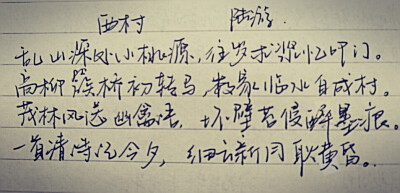 西村 陆游.
乱山深处小桃源,往岁求浆忆叩门。
高柳簇桥初转马,数家临水自成村。
茂林风送幽禽语,坏壁苔侵醉墨痕。
一首清诗记今夕,细云新月耿黄昏。